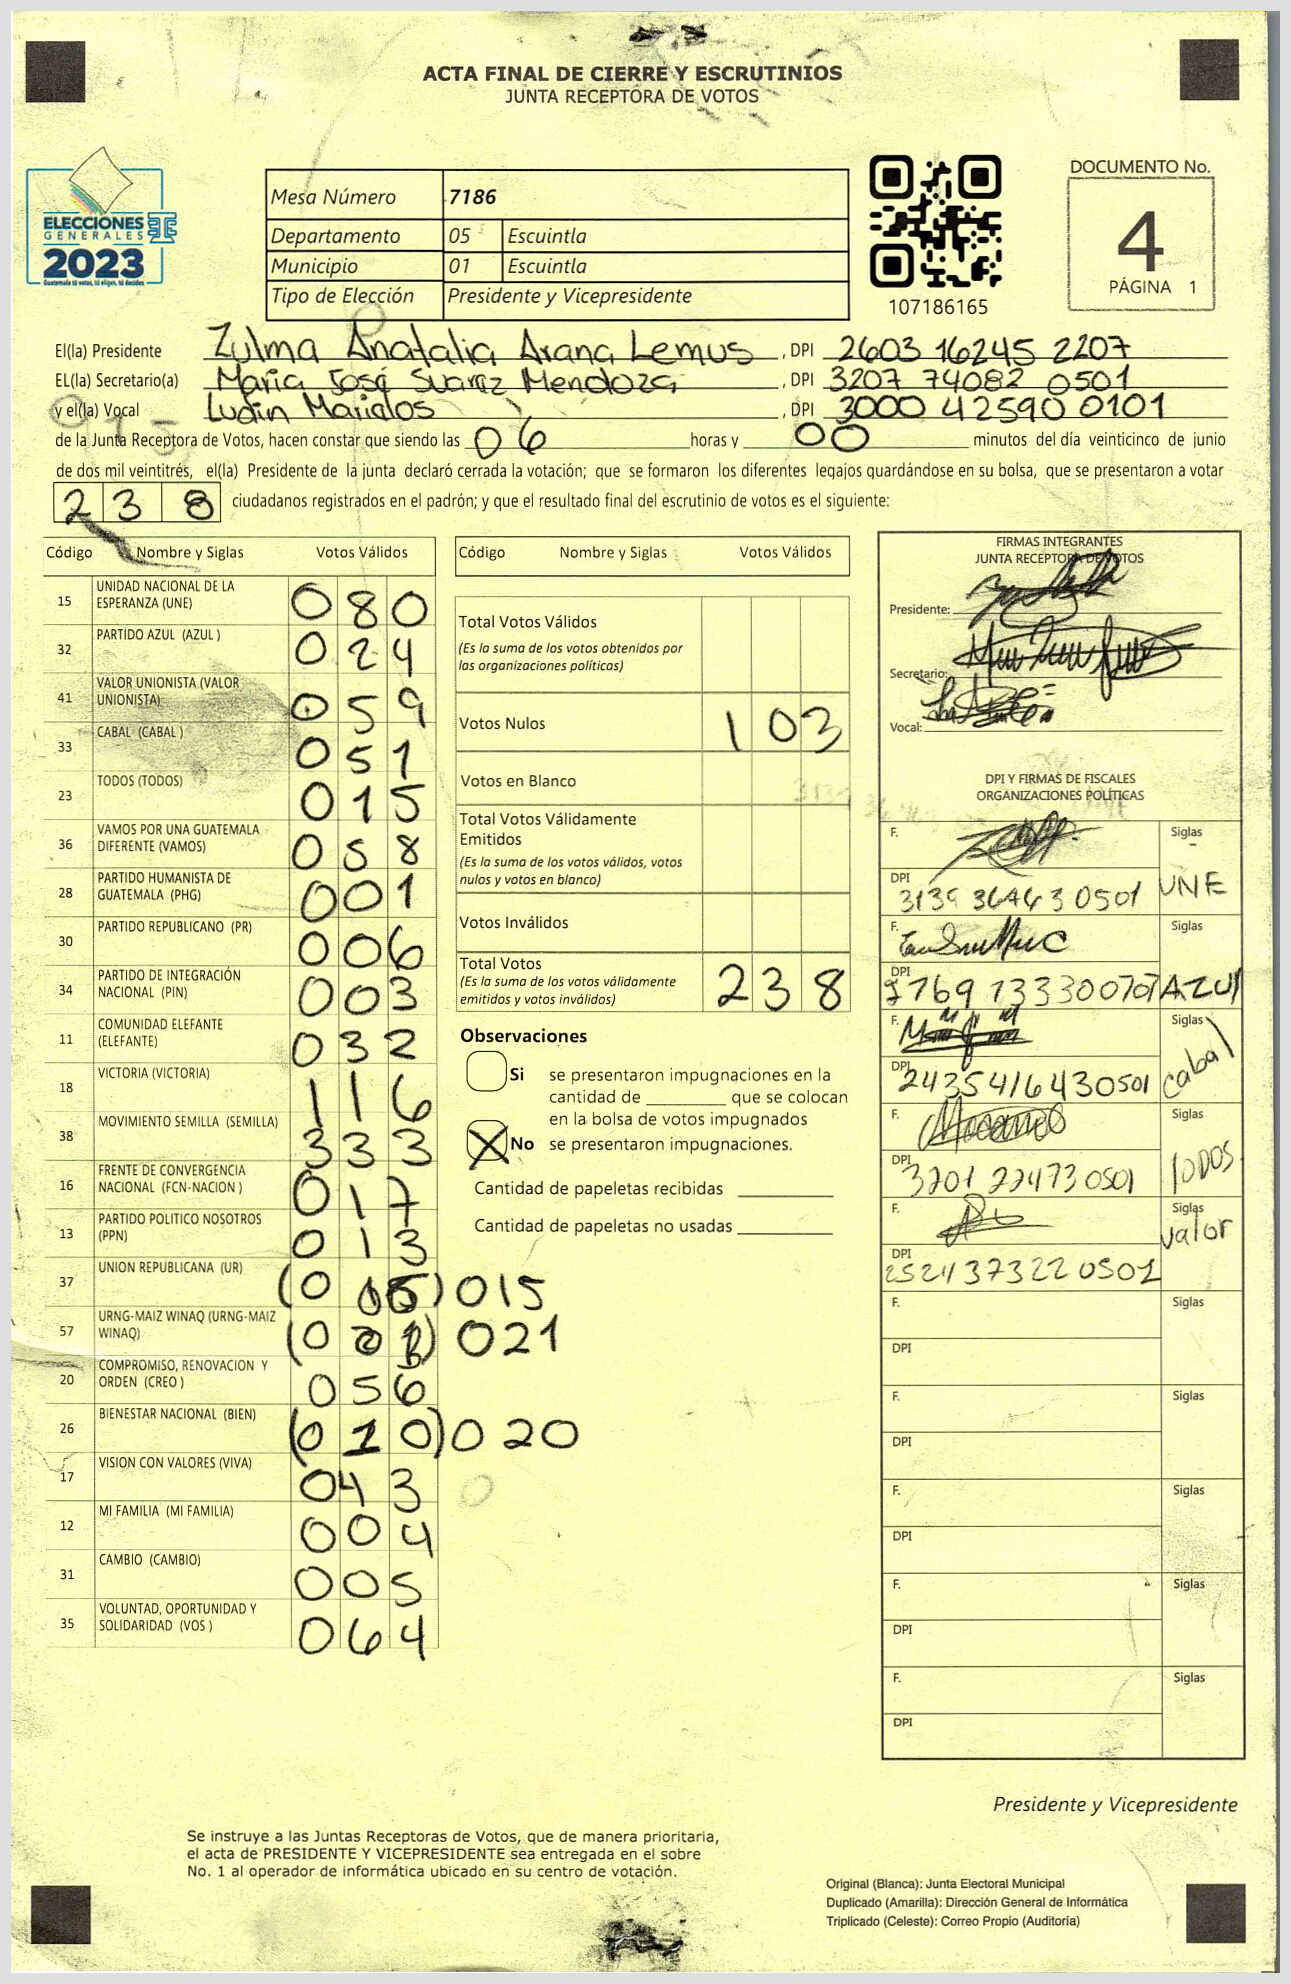 ACTA FINAL DE CIERRE Y ESCRUTINIOS
JUNTA RECEPTORA DE VOTOS
ELECCIONES
GENERALES
2023
Guatemala tú votas, tú eliges, tú decides
Mesa Número 7186
Departamento 05 Escuintla
Municipio 01 Escuintla
Tipo de Elección Presidente y Vicepresidente
107186165
DOCUMENTO No.
4
PÁGINA 1
El(la) Presidente Zulma Anatalia Arana Lemus, DPI 2603 16245 2207
EL(la) Secretario(a) Maria José Suarez Mendoza, DPI 3207 74082 0501
y el(la) Vocal Ludin, DPI 3000 42590 0101
de la Junta Receptora de Votos, hacen constar que siendo las 06 horas y 00 minutos del día veinticinco de junio
de dos mil veintitrés, el(la) Presidente de la junta declaró cerrada la votación; que se formaron los diferentes legajos guardándose en su bolsa, que se presentaron a votar
238 ciudadanos registrados en el padrón; y que el resultado final del escrutinio de votos es el siguiente:
Código Nombre y Siglas Votos Válidos
15 UNIDAD NACIONAL DE LA ESPERANZA (UNE) 080
32 PARTIDO AZUL (AZUL ) 024
41 VALOR UNIONISTA (VALOR UNIONISTA) 059
33 CABAL (CABAL ) 051
23 TODOS (TODOS) 015
36 VAMOS POR UNA GUATEMALA DIFERENTE (VAMOS) 058
28 PARTIDO HUMANISTA DE GUATEMALA (PHG) 001
30 PARTIDO REPUBLICANO (PR) 006
34 PARTIDO DE INTEGRACIÓN NACIONAL (PIN) 003
11 COMUNIDAD ELEFANTE (ELEFANTE) 032
18 VICTORIA (VICTORIA) 116
38 MOVIMIENTO SEMILLA (SEMILLA) 333
16 FRENTE DE CONVERGENCIA NACIONAL (FCN-NACION ) 017
13 PARTIDO POLITICO NOSOTROS (PPN) 013
37 UNION REPUBLICANA (UR) 015
57 URNG-MAIZ WINAQ (URNG-MAIZ WINAQ) 021
20 COMPROMISO, RENOVACION Y ORDEN (CREO ) 056
26 BIENESTAR NACIONAL (BIEN) (010) 020
17 VISION CON VALORES (VIVA) 043
12 MI FAMILIA (MI FAMILIA) 004
31 CAMBIO (CAMBIO) 005
35 VOLUNTAD, OPORTUNIDAD Y SOLIDARIDAD (VOS ) 064
Código Nombre y Siglas Votos Válidos
Total Votos Válidos
(Es la suma de los votos obtenidos por
las organizaciones políticas)
Votos Nulos 103
Votos en Blanco
Total Votos Válidamente
Emitidos
(Es la suma de los votos válidos, votos
nulos y votos en blanco)
Votos Inválidos
Total Votos 238
(Es la suma de los votos válidamente
emitidos y votos inválidos)
Observaciones
Si se presentaron impugnaciones en la
cantidad de ________ que se colocan
en la bolsa de votos impugnados
X No se presentaron impugnaciones.
Cantidad de papeletas recibidas
Cantidad de papeletas no usadas
FIRMAS INTEGRANTES
JUNTA RECEPTORA DE VOTOS
Presidente:
Secretario:
Vocal:
DPI Y FIRMAS DE FISCALES
ORGANIZACIONES POLÍTICAS
F. Siglas
DPI UNE
F. Siglas
DPI AZUL
F. Siglas
DPI 2435416430501 cabal
F. Siglas
DPI 3201 22473 0501 TODOS
F. Siglas
DPI 2524373220501 valor
F. Siglas
DPI
F. Siglas
DPI
F. Siglas
DPI
F. Siglas
DPI
F. Siglas
DPI
Presidente y Vicepresidente
Se instruye a las Juntas Receptoras de Votos, que de manera prioritaria,
el acta de PRESIDENTE Y VICEPRESIDENTE sea entregada en el sobre
No. 1 al operador de informática ubicado en su centro de votación.
Original (Blanca): Junta Electoral Municipal
Duplicado (Amarilla): Dirección General de Informática
Triplicado (Celeste): Correo Propio (Auditoría)